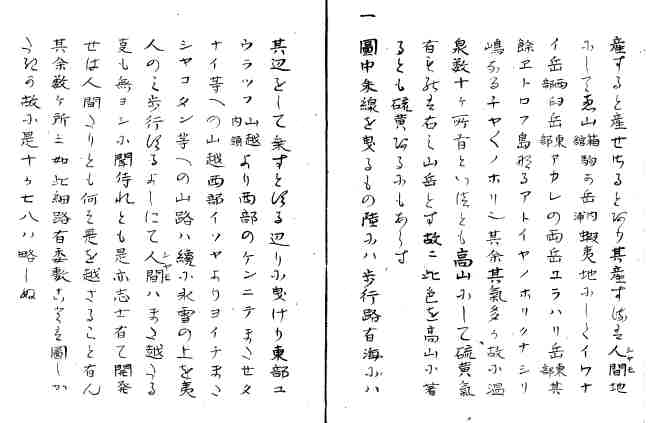 産すると産せさるとあり其産するは人間地シャモ
にして恵山箱館駒か岳内浦蝦夷地にしてイワナ
イ岳西部臼岳東部アカレの両岳ユウハリ岳東部其
餘ヱトロフ島なるアトイヤノホリクナシリ
嶋なるチヤくノホリ也其余其氣多き故に温
泉数十ケ所有といへとも高山にして硫黄氣
有を以右之山岳とす故に此色を高山に著
るとも硫黄あるにもあらす
一 圖中朱線を曳るもの陸には歩行路有海には
其辺をして氣すとする辺りに曳けり東部ユ
ウラップ山越内領より西部のケンニチまさせタ
ナイ等への山越西部イソヤよりヨイチまき
シヤコタン等への山路ハ續に氷雪の上を夷
人のミ歩行するよしにて人間シャモハまた越たる
事も無ヨシに聞待れとも是亦志士有て開発
せは人間たりとも何そ是を越さること有ん
其余数ケ所ニ如此細路有悉敷こと是圖しか
たきか故に是十か七八ハ略しぬ